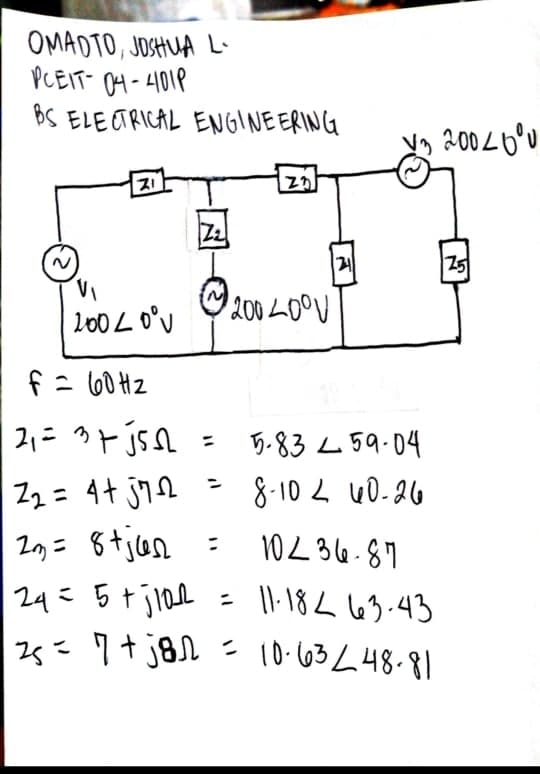 OMADTO, JOSHUA L.
PCEIT- 04-401P
BS ELECTRICAL ENGINEERING
V3 200∠0°V
Z1
Z3
Z2
Z4
Z5
V1
200∠0°V
200∠0°V
f = 60Hz
Z1 = 3+j5Ω = 5.83∠59.04
Z2 = 4+j7Ω = 8.10∠60.26
Z3 = 8+j6Ω = 10∠36.87
Z4 = 5+j10Ω = 11.18∠63.43
Z5 = 7+j8Ω = 10.63∠48.81